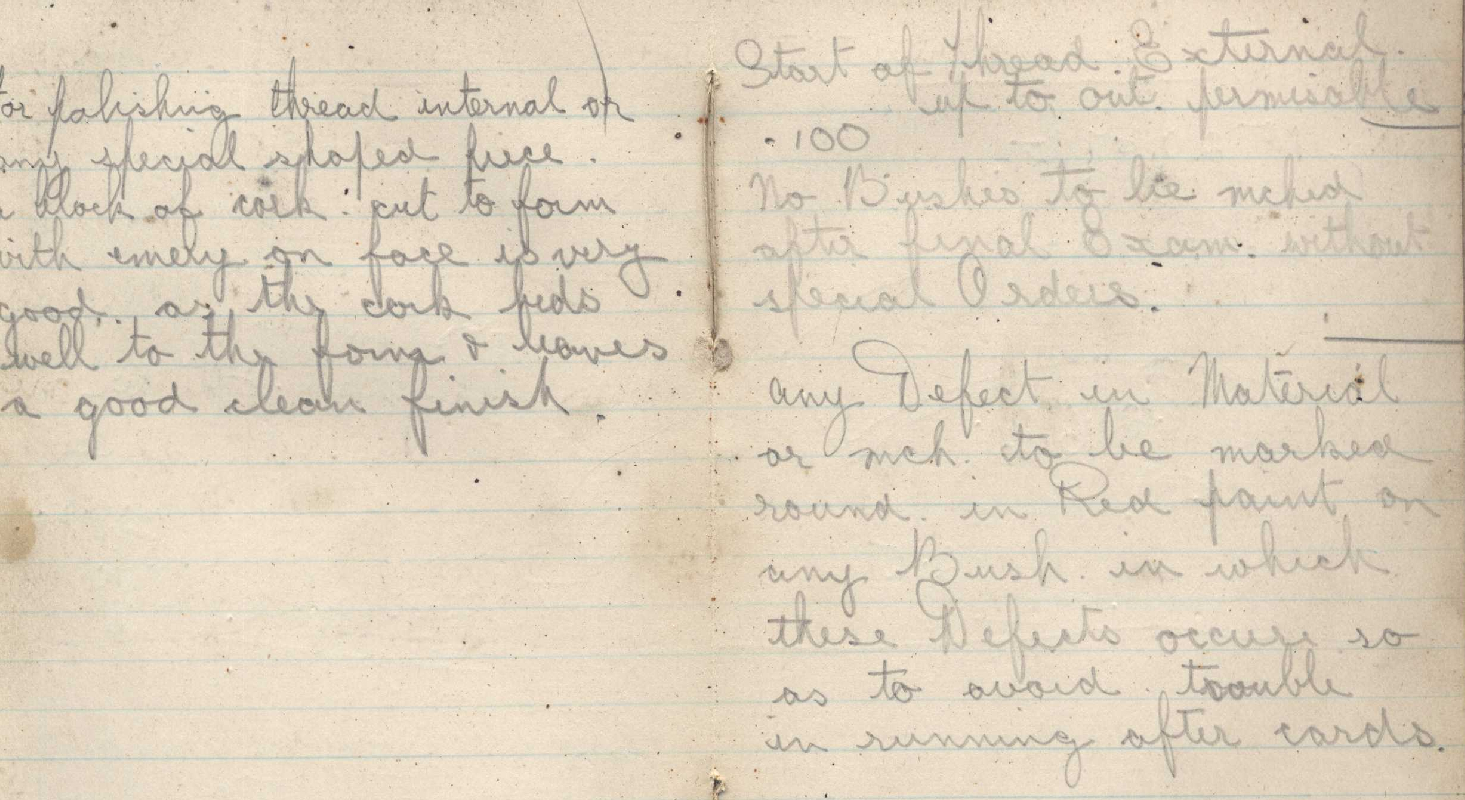 for polishing thread internal or
any special shaped piece.
a block of cork. cut to form
with emery on face is very
good. as the cork beds
well to the form & leaves
a good clean finish.
Start of Thread. External.
up to out. permisable
.100
No Bushes to be mched
after final Exam. without
special Orders.
any Defect in Material
or mch. to be marked
round. in Red paint on
any Bush. in which
these Defects occurs so
as to avoid trouble
in running after cards.